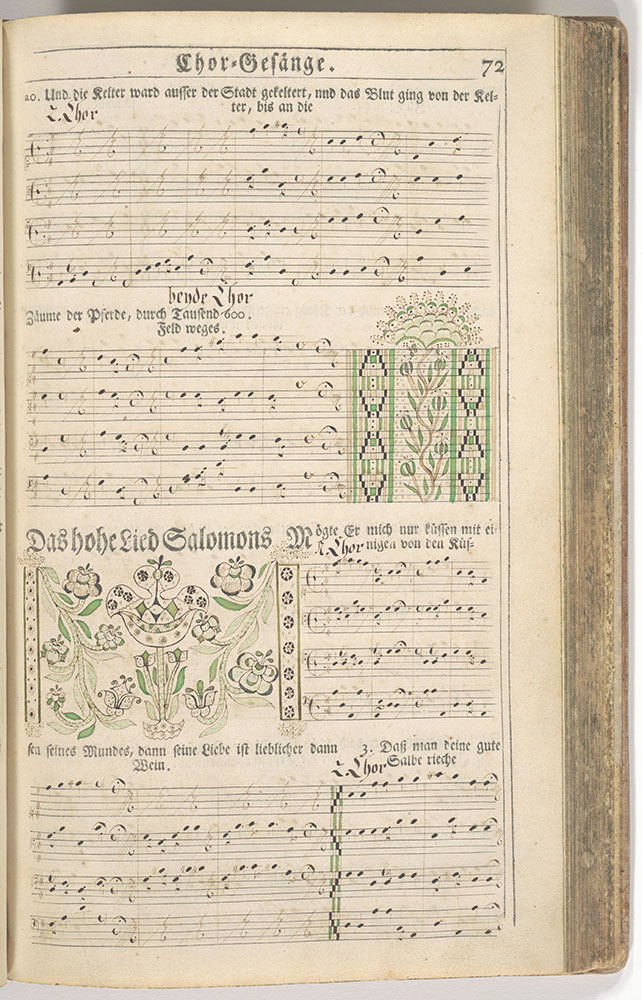 Chor-Gesänge. 72
20. Und die Kelter ward ausser der Stadt gekeltert, nnd das Blut ging von der Kel-
2. Chor ter, bis an die
beyde Chor
Zäume der Pferde, durch Tausend 600.
Feld weges.
Das hohe Lied Salomons Mögte Er mich nur küssen mit ei-
1. Chor nigen von den Küs-
sen seines Mundes, dann seine Liebe ist lieblicher dann 3. Daß man deine gute
Wein. 2. Chor Salbe rieche